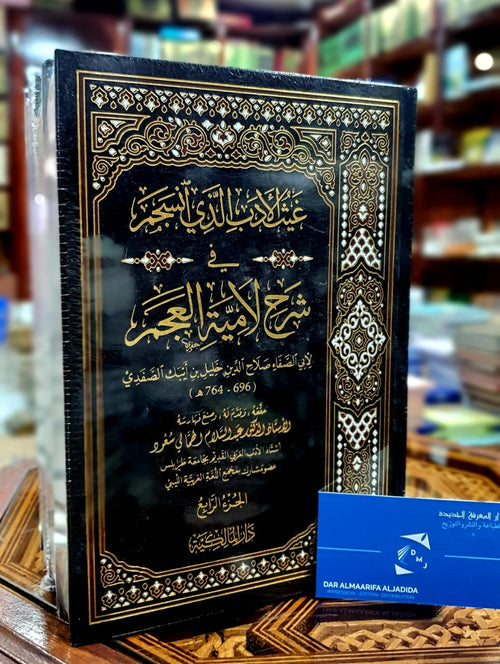 غيث الأدب الذي انسجم
في
شرح لامية العجم
لأبي الصفاء صلاح الدين خليل بن أيبك الصفدي
(696 - 764 هـ)
حققه، وقدم له، وصنع فهارسه
الأستاذ الدكتور عبد السلام الهمالي سعود
أستاذ الأدب العربي القديم بجامعة طرابلس
عضو مشارك بمجمع اللغة العربية الليبي
الجزء الرابع
دار المالكية
دار المعرفة الجديدة
للطباعة والنشر والتوزيع
DMJ
DAR ALMAARIFA ALJADIDA
IMPRESSION - EDITION - DISTRIBUTION